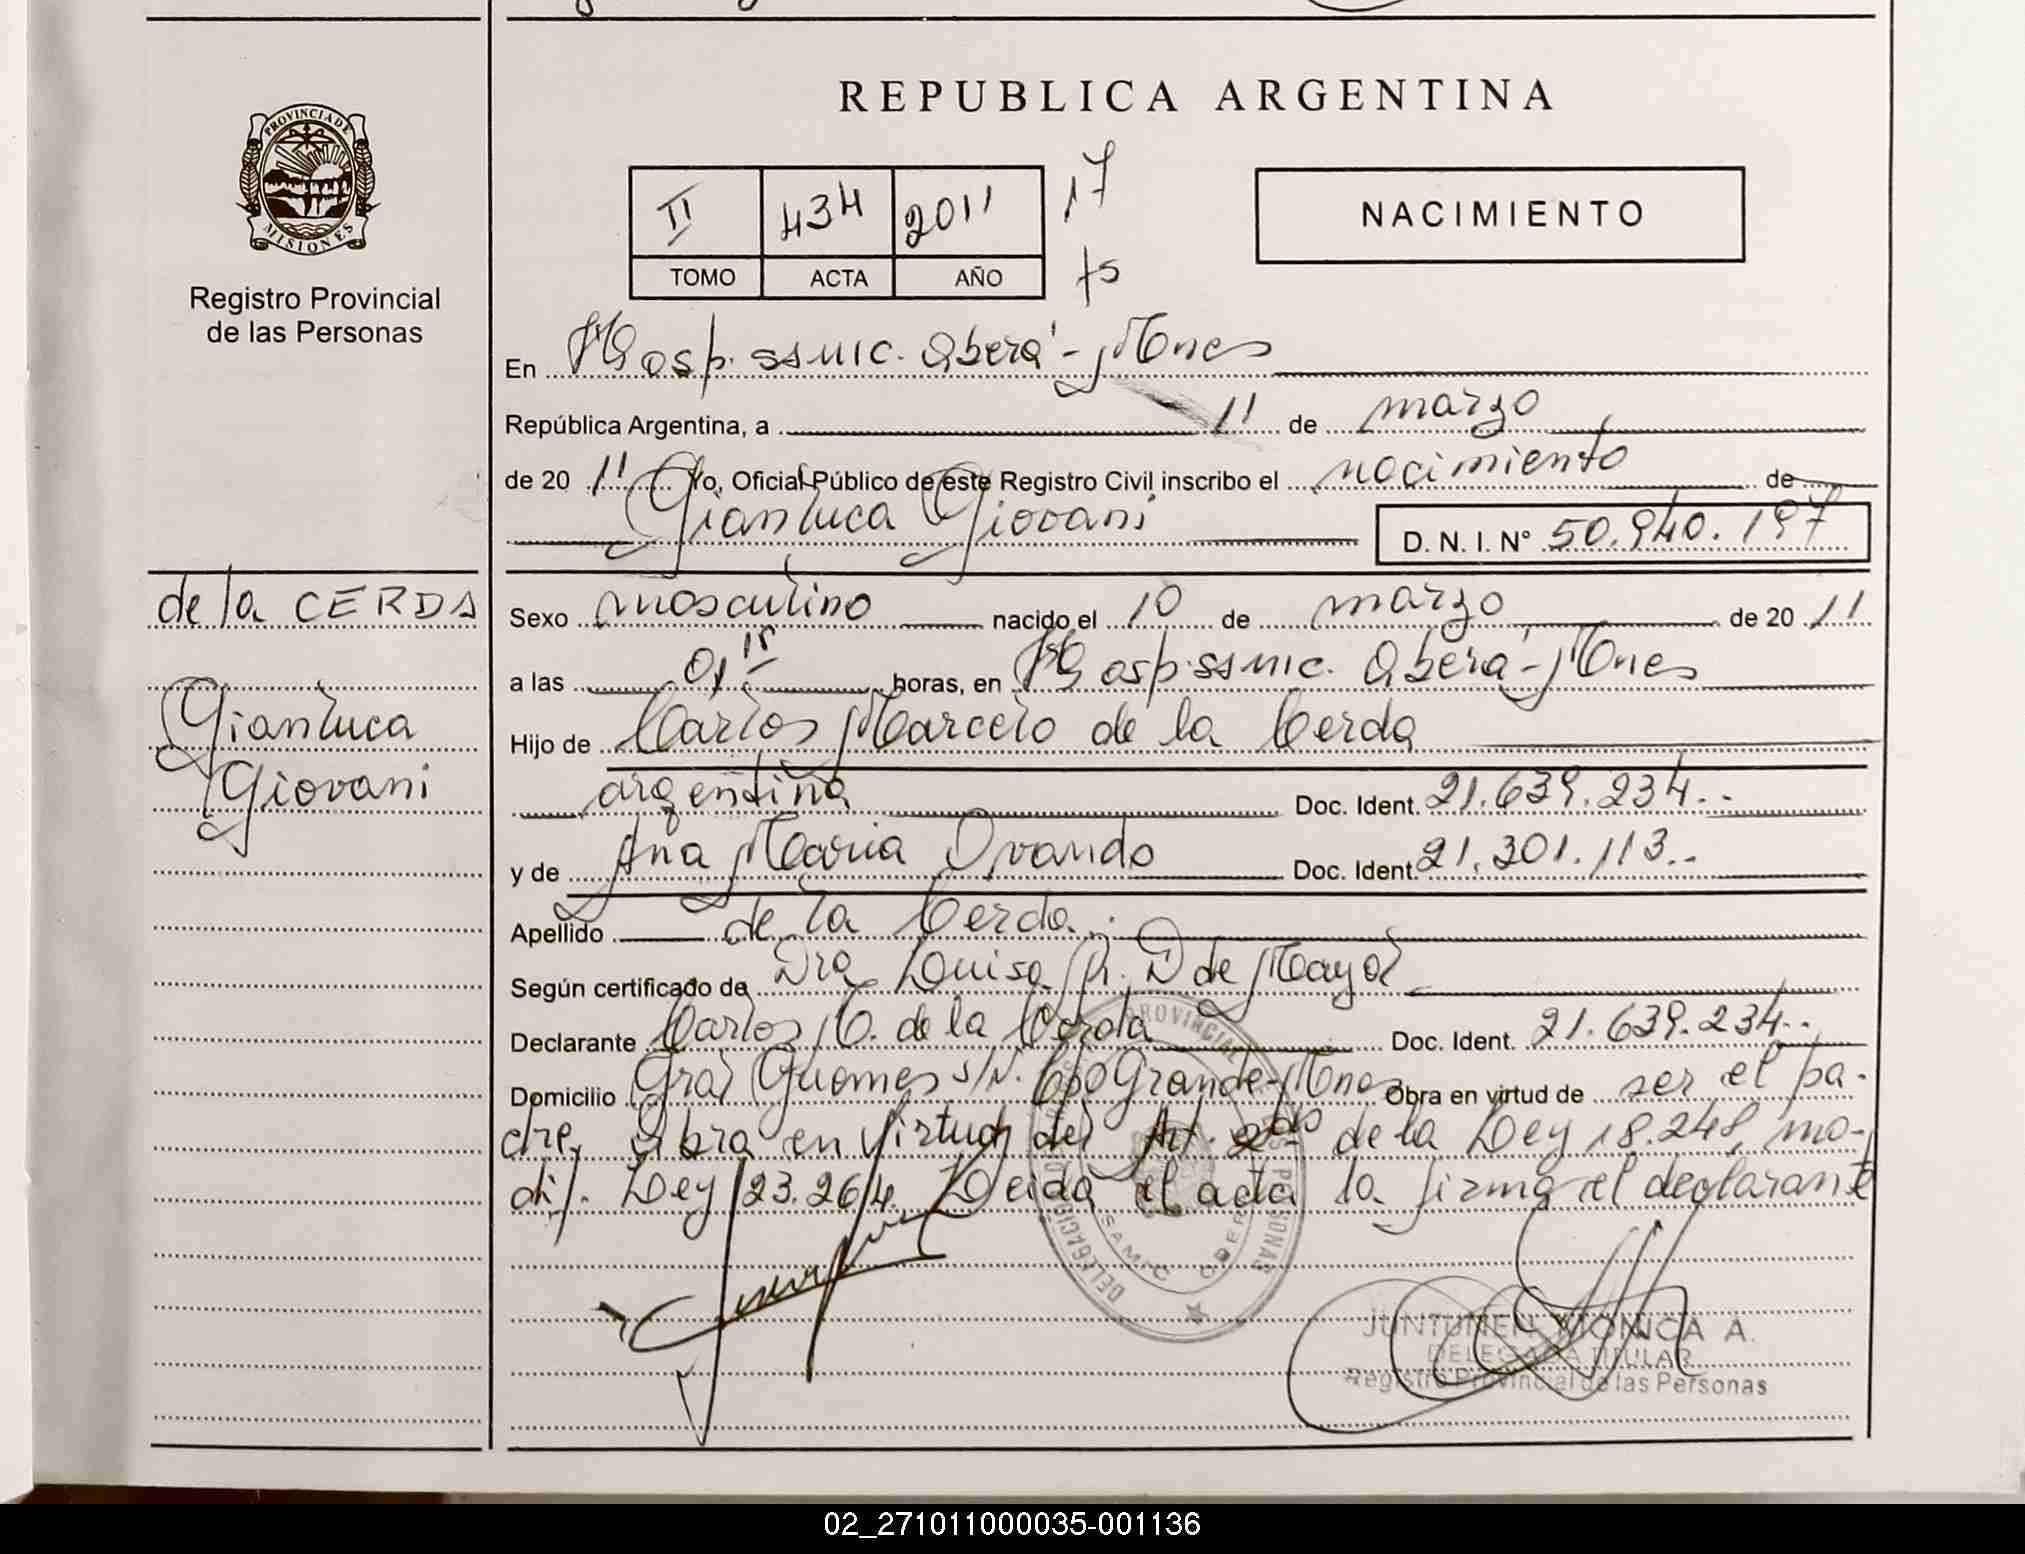 PROVINCIA DE
MISIONES
Registro Provincial
de las Personas
REPUBLICA ARGENTINA
II 434 2011 17
TOMO ACTA AÑO
NACIMIENTO
En Hosp. SSMIC. Oberá - Mnes
República Argentina, a 11 de marzo
de 20 11 Yo, Oficial Público de este Registro Civil inscribo el nacimiento de
Gianluca Giovani D. N. I. N° 50.940.197
de la CERDA
Gianluca
Giovani
Sexo masculino nacido el 10 de marzo de 20 11
a las 01 15 horas, en Hosp. SSMIC. Oberá - Mnes
Hijo de Carlos Marcelo de la Cerda
argentina Doc. Ident. 21.639.234..
y de Ana Maria Ovando Doc. Ident. 21.301.113..
Apellido de la Cerda.
Según certificado de Dra Luisa D de Mayol
Declarante Carlos M. de la Cerda Doc. Ident. 21.639.234..
Domicilio Gral Guemes s/N. Cpo Grande - Mnes Obra en virtud de ser el pa-
dre, Obra en virtud del Art. 2do de la Ley 18.248, mo-
dif. Ley 23.264. Leida el acta la firma el declarante
DELEGACION PROVINCIAL PERSONAS
SAMIC OBERA
JUNTUNEN MONICA A.
DELEGADA TITULAR
Registro Provincial de las Personas
02_271011000035-001136